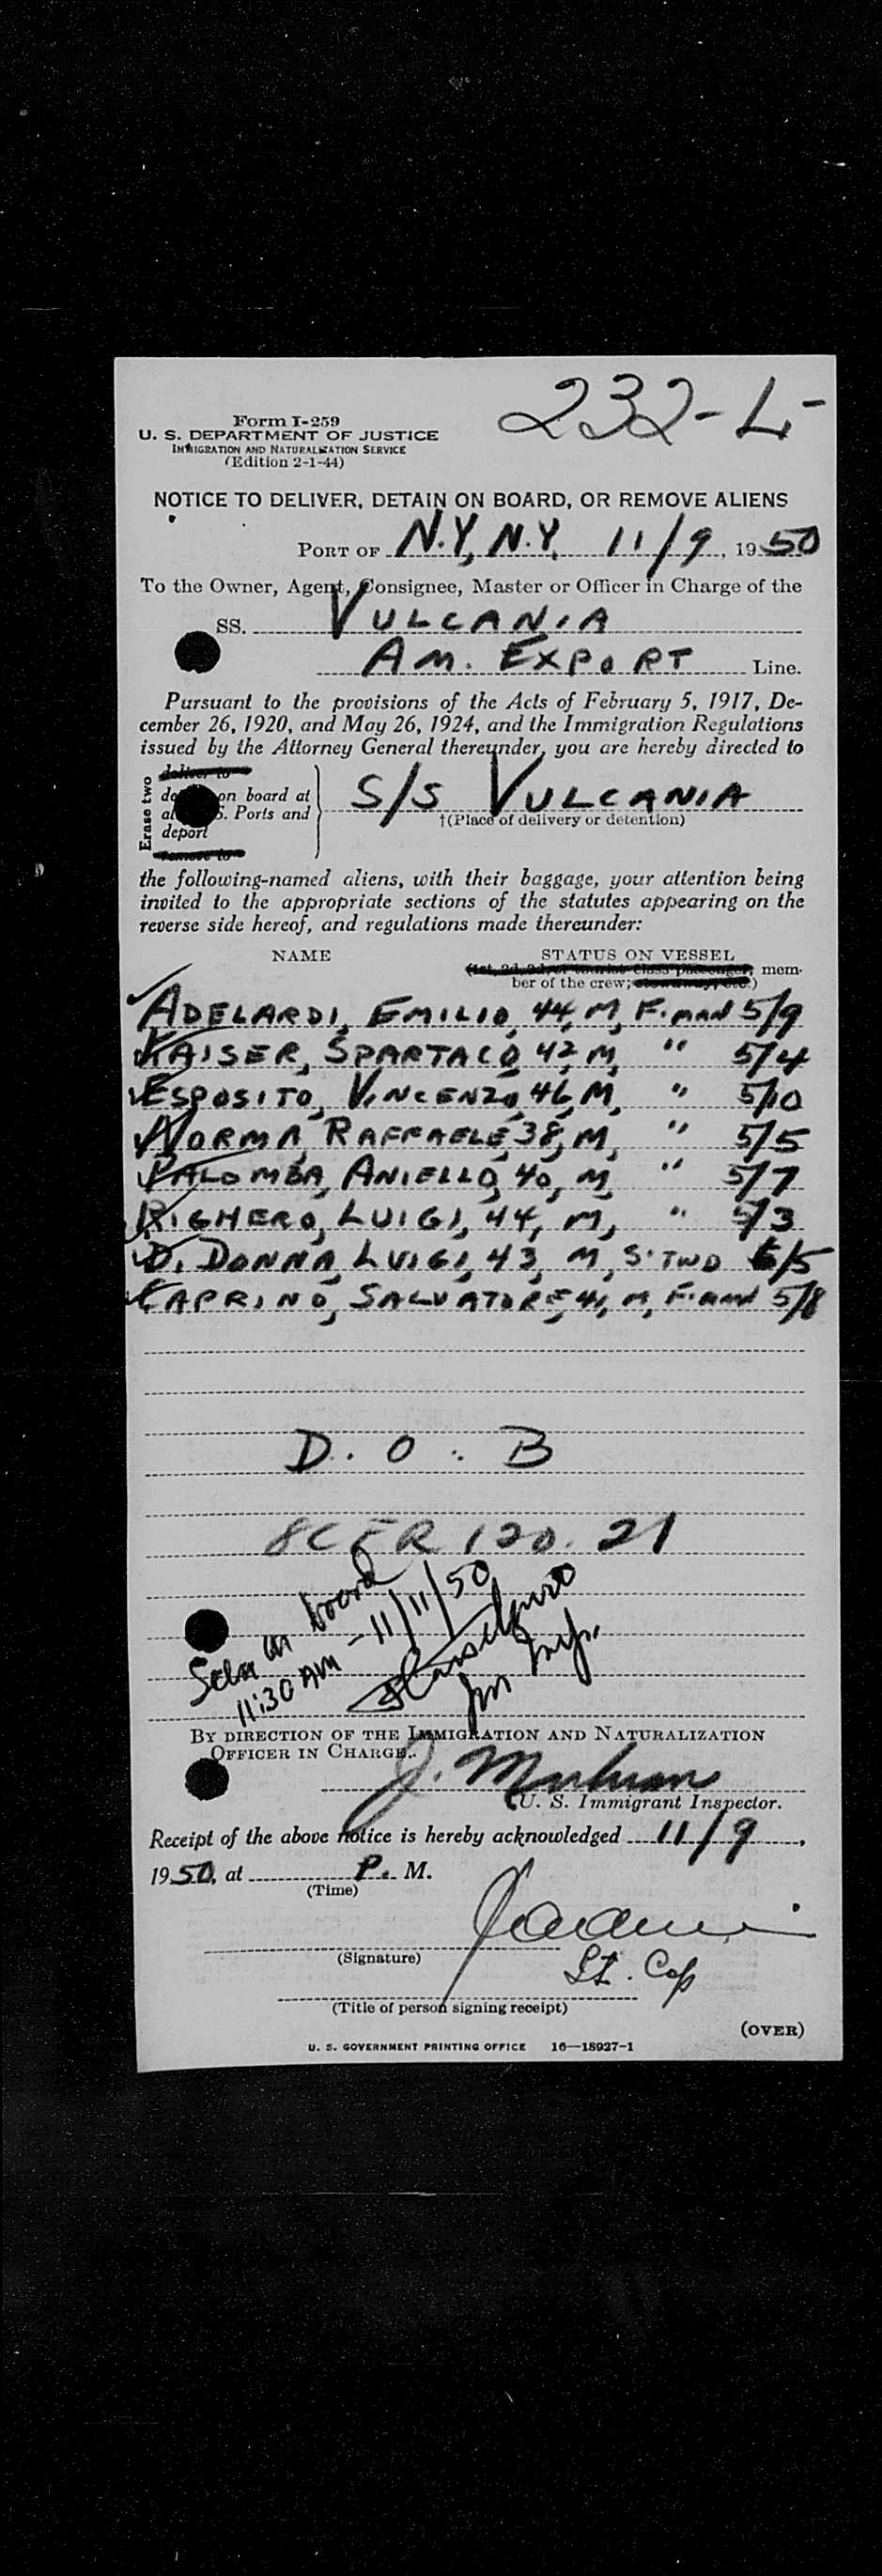 232-L-
Form I-259
U. S. DEPARTMENT OF JUSTICE
IMMIGRATION AND NATURALIZATION SERVICE
(Edition 2-1-44)
NOTICE TO DELIVER, DETAIN ON BOARD, OR REMOVE ALIENS
PORT OF N.Y, N.Y. 11/9, 1950
To the Owner, Agent, Consignee, Master or Officer in Charge of the
SS. VULCANIA
AM. EXPORT Line.
Pursuant to the provisions of the Acts of February 5, 1917, De-
cember 26, 1920, and May 26, 1924, and the Immigration Regulations
issued by the Attorney General thereunder, you are hereby directed to
Erase two
deliver to
on board at
S. Ports and
deport
remove to
S/S VULCANIA
†(Place of delivery or detention)
the following-named aliens, with their baggage, your attention being
invited to the appropriate sections of the statutes appearing on the
reverse side hereof, and regulations made thereunder:
NAME STATUS ON VESSEL
(1st, 2d, 3d, or tourist class passenger; mem-
ber of the crew; stowaway, etc.)
ADELARDI, EMILIO, 44, M, F.man 5/9
KAISER, SPARTACO, 42, M, " 5/4
ESPOSITO, VINCENZO, 46, M, " 5/10
NORMA, RAFFAELE, 38, M, " 5/5
PALOMBA, ANIELLO, 40, M, " 5/7
RIGHERO, LUIGI, 44, M, " 5/3
DI DONNA, LUIGI, 43, M, S. TWD 6/5
CAPRINO, SALVATORE, 41, M, F.man 5/8
D. O. B
8 CFR 120.21
Seen on board
11:30 AM - 11/11/50
Imm Insp.
BY DIRECTION OF THE IMMIGRATION AND NATURALIZATION
OFFICER IN CHARGE.
J.
U. S. Immigrant Inspector.
Receipt of the above notice is hereby acknowledged 11/9,
1950, at P. M.
(Time)
(Signature)
(Title of person signing receipt)
(OVER)
U. S. GOVERNMENT PRINTING OFFICE 16—18927-1